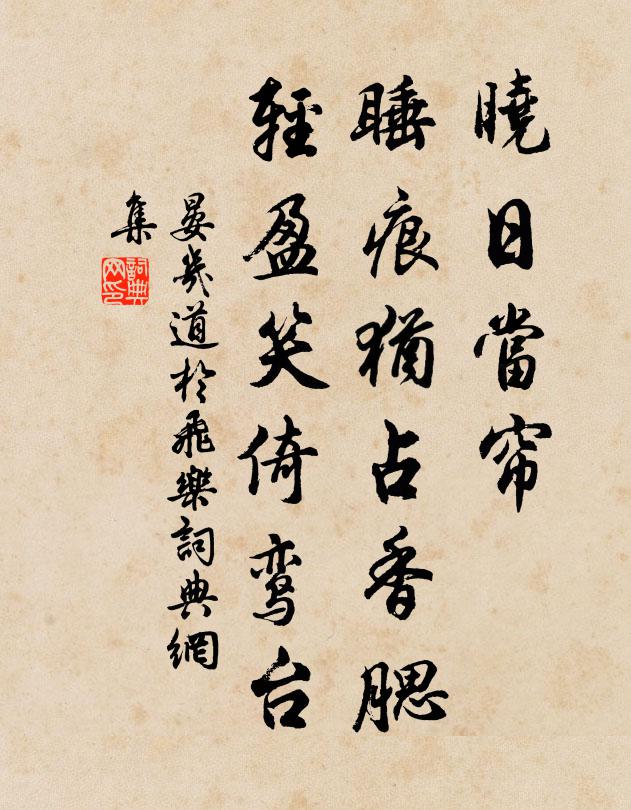 曉日當帘
睡痕猶占香腮
輕盈笑倚鸾台
晏幾道於飛樂詞典網
集
詞典网印